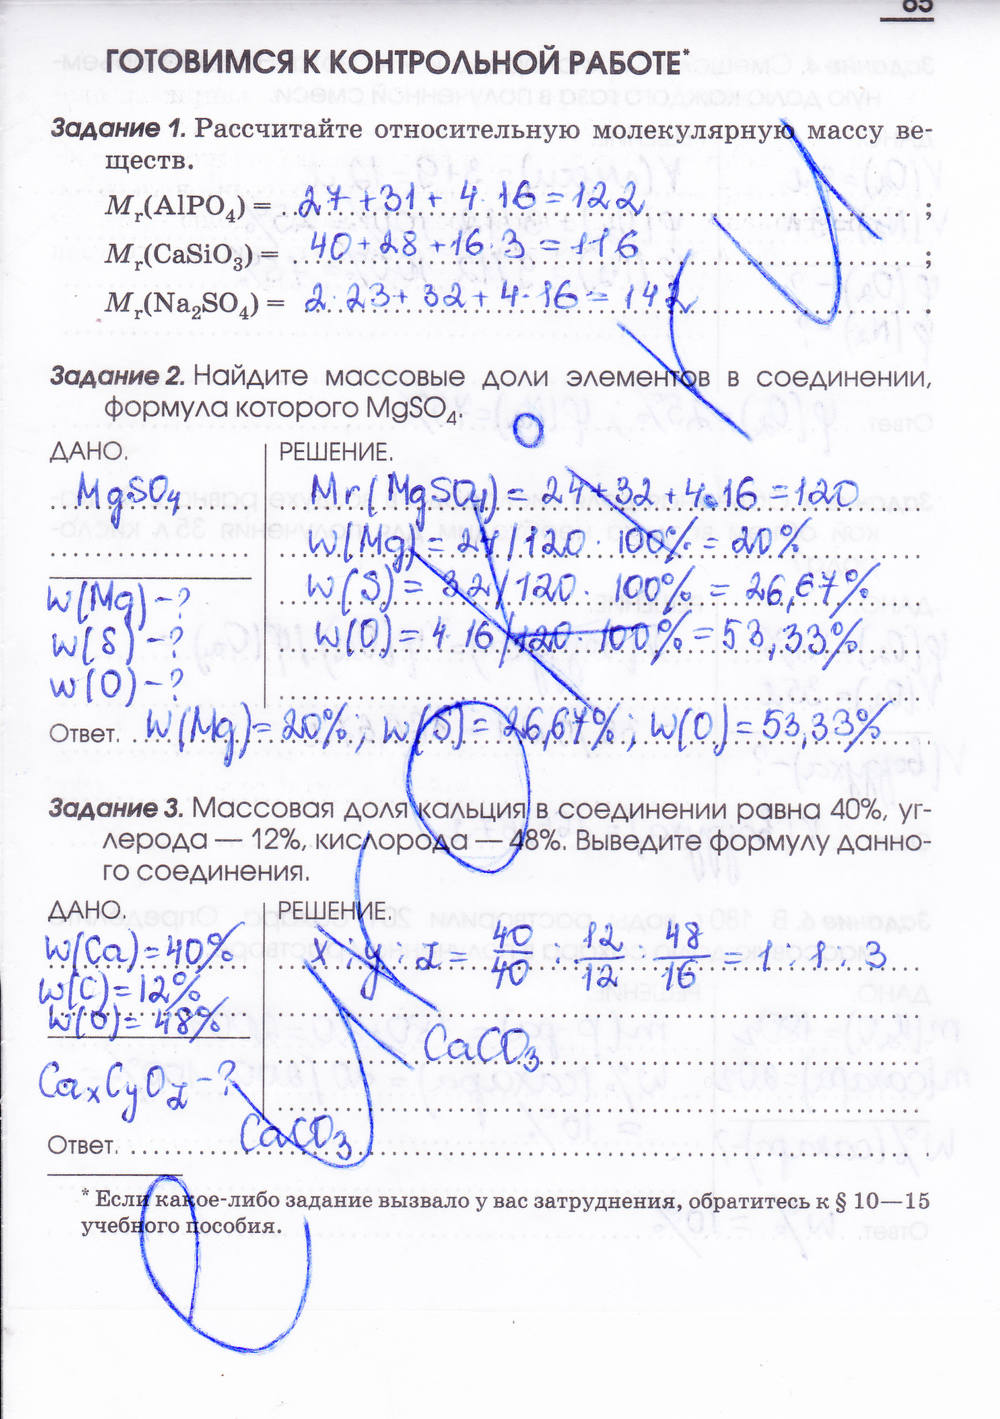 65
ГОТОВИМСЯ К КОНТРОЛЬНОЙ РАБОТЕ*
Задание 1. Рассчитайте относительную молекулярную массу ве-
ществ.
Mr(AlPO₄) = 27 + 31 + 4 · 16 = 122 ;
Mr(CaSiO₃) = 40 + 28 + 16 · 3 = 116 ;
Mr(Na₂SO₄) = 2 · 23 + 32 + 4 · 16 = 142 .
Задание 2. Найдите массовые доли элементов в соединении,
формула которого MgSO₄.
ДАНО.
MgSO₄
w(Mg) - ?
w(S) - ?
w(O) - ?
РЕШЕНИЕ.
Mr(MgSO₄) = 24 + 32 + 4 · 16 = 120
w(Mg) = 24/120 · 100% = 20%
w(S) = 32/120 · 100% = 26,67%
w(O) = 4·16/120 · 100% = 53,33%
Ответ. w(Mg) = 20%; w(S) = 26,67%; w(O) = 53,33%
Задание 3. Массовая доля кальция в соединении равна 40%, уг-
лерода — 12%, кислорода — 48%. Выведите формулу данно-
го соединения.
ДАНО.
w(Ca) = 40%
w(C) = 12%
w(O) = 48%
CaxCyOz - ?
РЕШЕНИЕ.
x : y : z = 40/40 : 12/12 : 48/16 = 1 : 1 : 3
CaCO₃
Ответ. CaCO₃
* Если какое-либо задание вызвало у вас затруднения, обратитесь к § 10—15
учебного пособия.